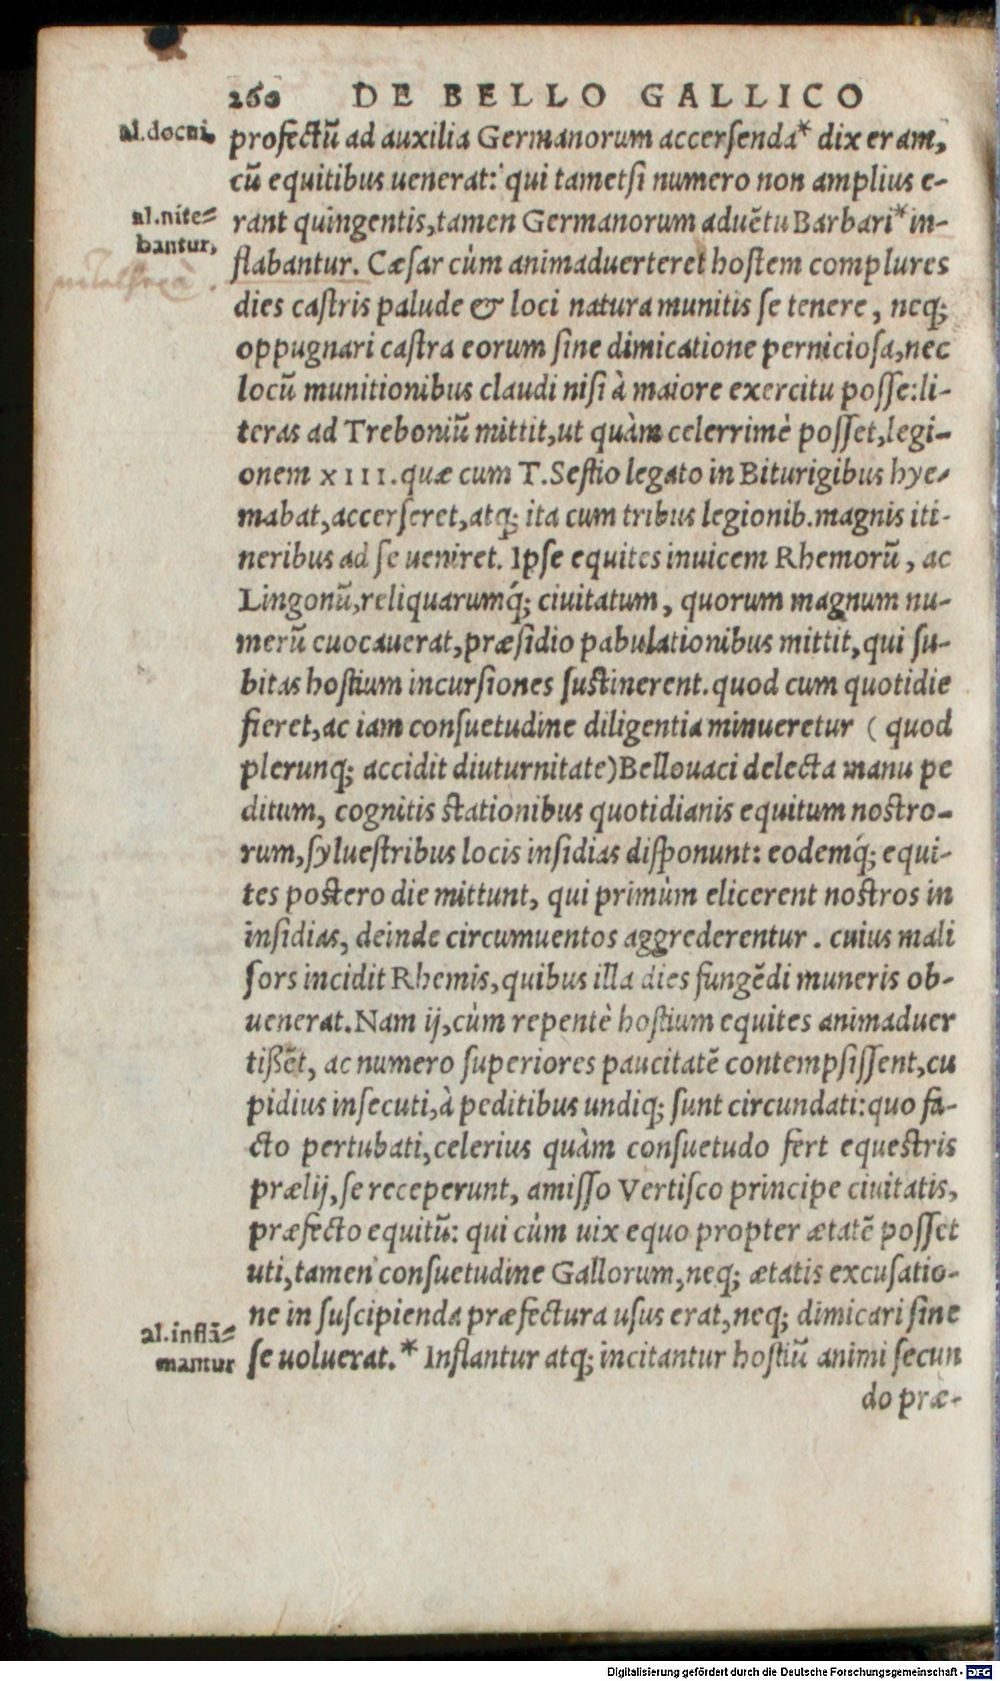 260 DE BELLO GALLICO
al.docui, profectū ad auxilia Germanorum accersenda* dixeram,
cū equitibus uenerat: qui tametsi numero non amplius e-
al.nite= rant quingentis,tamen Germanorum aduētu Barbari* in-
bantur, flabantur. Cæsar cùm animaduerteret hostem complures
dies castris palude & loci natura munitis se tenere, neq;
oppugnari castra eorum sine dimicatione perniciosa,nec
locū munitionibus claudi nisi à maiore exercitu posse:li-
teras ad Treboniū mittit,ut quàm celerrimè posset,legi-
onem XIII.quæ cum T.Sestio legato in Biturigibus hye-
mabat,accerseret,atq; ita cum tribus legionib.magnis iti-
neribus ad se ueniret. Ipse equites inuicem Rhemorū, ac
Lingonū,reliquarumq́; ciuitatum, quorum magnum nu-
merū euocauerat,præsidio pabulationibus mittit,qui su-
bitas hostium incursiones sustinerent.quod cum quotidie
fieret,ac iam consuetudine diligentia minueretur (quod
plerunq; accidit diuturnitate)Bellouaci delecta manu pe
ditum, cognitis stationibus quotidianis equitum nostro-
rum,syluestribus locis insidias disponunt: eodemq́; equi-
tes postero die mittunt, qui primùm elicerent nostros in
insidias, deinde circumuentos aggrederentur. cuius mali
sors incidit Rhemis,quibus illa dies fungēdi muneris ob-
uenerat.Nam ij,cùm repentè hostium equites animaduer
tißēt, ac numero superiores paucitatē contempsissent,cu
pidius insecuti,à peditibus undiq; sunt circundati:quo fa-
cto pertubati,celerius quàm consuetudo fert equestris
prælij,se receperunt, amisso Vertisco principe ciuitatis,
præfecto equitū: qui cùm uix equo propter ætatē posset
uti,tamen consuetudine Gallorum,neq; ætatis excusatio-
ne in suscipienda præfectura usus erat,neq; dimicari sine
al.inflā= se uoluerat.* Inflantur atq; incitantur hostiū animi secun
mantur
do præ-
Digitalisierung gefördert durch die Deutsche Forschungsgemeinschaft - DFG